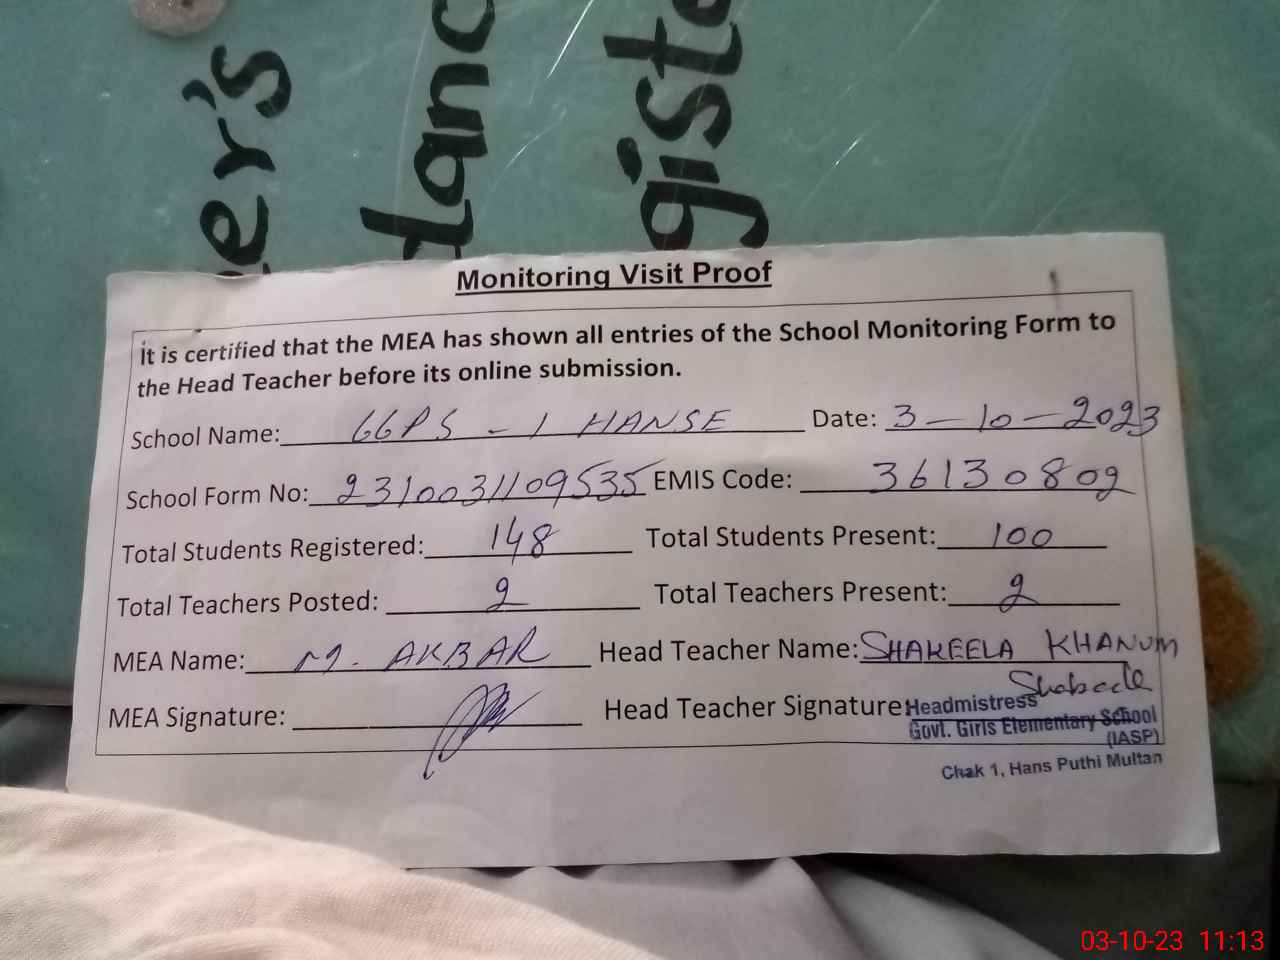 er's
danc
giste
Monitoring Visit Proof
it is certified that the MEA has shown all entries of the School Monitoring Form to
the Head Teacher before its online submission.
School Name: GGPS - 1 HANSE Date: 3-10-2023
School Form No: 2310031109535 EMIS Code: 36130809
Total Students Registered: 148 Total Students Present: 100
Total Teachers Posted: 2 Total Teachers Present: 2
MEA Name: M. AKBAR Head Teacher Name: SHAKEELA KHANUM
MEA Signature: Head Teacher Signature:
Headmistress
Govt. Girls Elementary School
(IASP)
Chak 1, Hans Puthi Multan
03-10-23 11:13